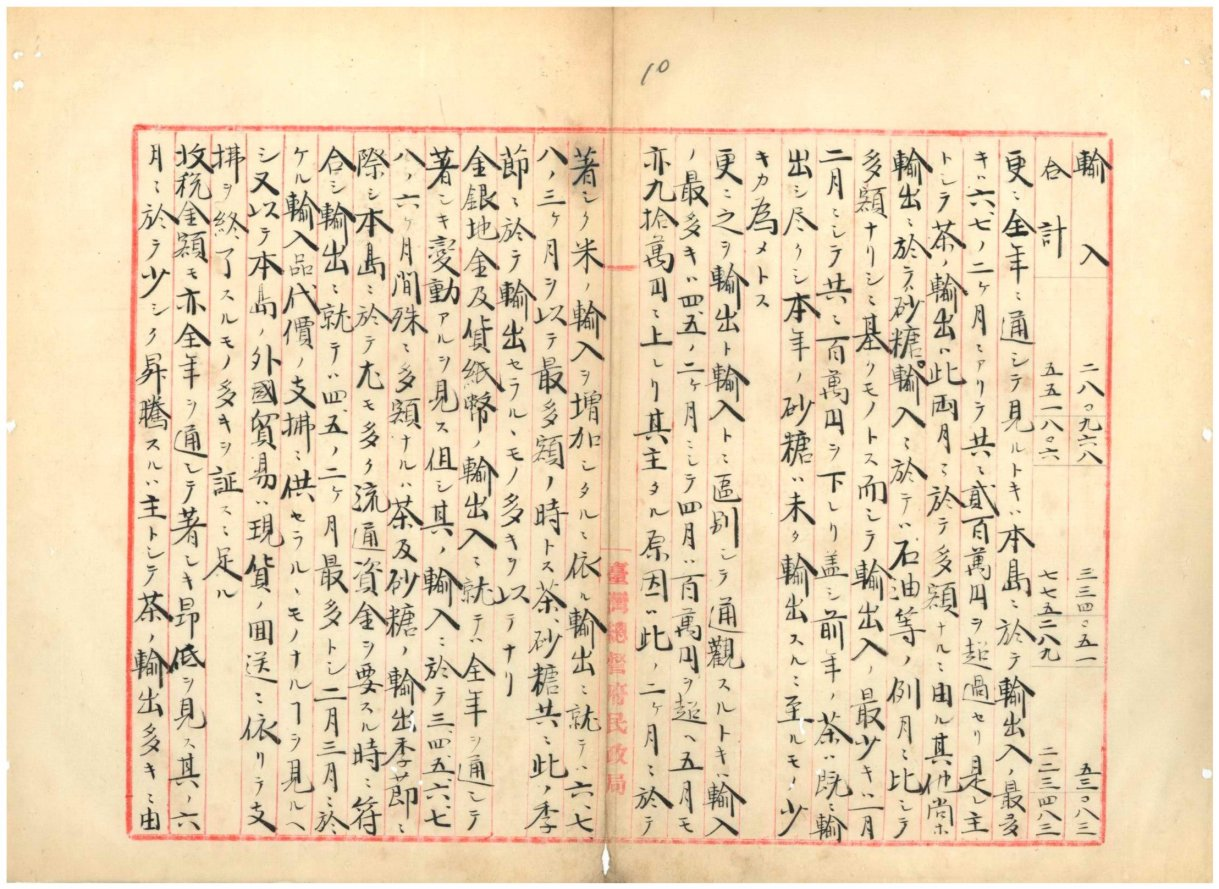 10
輸入 二八〇九六八 三三四〇五一 五三〇八三
合計 五五一八〇六 七七五二八九 二二三四八三
更ニ全年ニ通シテ見ルトキハ本島ニ於テ輸出入ノ最多
キハ六七ノ二ケ月ニアリテ共ニ貳百萬円ヲ超過セリ是レ主
トシテ茶ノ輸出ハ此両月ニ於テ多額ナルニ由ル其他尚ホ
輸出ニ於テハ砂糖。輸入ニ於テハ石油等ノ例月ニ比シテ
多額ナリシニ基クモノトス而シテ輸出入ノ最少キハ一月
二月ニシテ共ニ百萬円ヲ下レリ盖シ前年ノ茶ハ既ニ輸
出シ尽クシ本年ノ砂糖ハ未タ輸出スルニ至ルモノ少
キカ為メトス
更ニ之ヲ輸出ト輸入トニ區別シテ通觀スルトキハ輸入
ノ最多キハ四、五ノ二ケ月ニシテ四月ハ百萬円ヲ超ヘ五月モ
亦九拾萬円ニ上レリ其主タル原因ハ此ノ二ケ月ニ於テ
臺灣總督府民政局
著シク米ノ輸入ヲ増加シタルニ依ル輸出ニ就テハ六、七、
八ノ三ケ月ヲ以テ最多額ノ時トス茶、砂糖共ニ此ノ季
節ニ於テ輸出セラルヽモノ多キヲ以テナリ
金銀地金及貨紙幣ノ輸出入ニ就テハ全年ヲ通シテ
著シキ変動アルヲ見ス但シ其ノ輸入ニ於テ三、四、五、六、七
八ノ六ケ月間殊ニ多額ナルハ茶及砂糖ノ輸出季節ニ
際シ本島ニ於テ尤モ多ク流通資金ヲ要スル時ニ符
合シ輸出ニ就テハ四、五ノ二ケ月最多トシ二月三月ニ於
ケル輸入品代價ノ支拂ニ供セラルヽモノナルヿヲ見ルヘ
シ又以テ本島ノ外國貿易ハ現貨ノ回送ニ依リテ支
拂ヲ終了スルモノ多キヲ証スニ足ル
收税金額モ亦全年ヲ通シテ著シキ昂低ヲ見ス其ノ六
月ニ於テ少シク昇騰スルハ主トシテ茶ノ輸出多キニ由